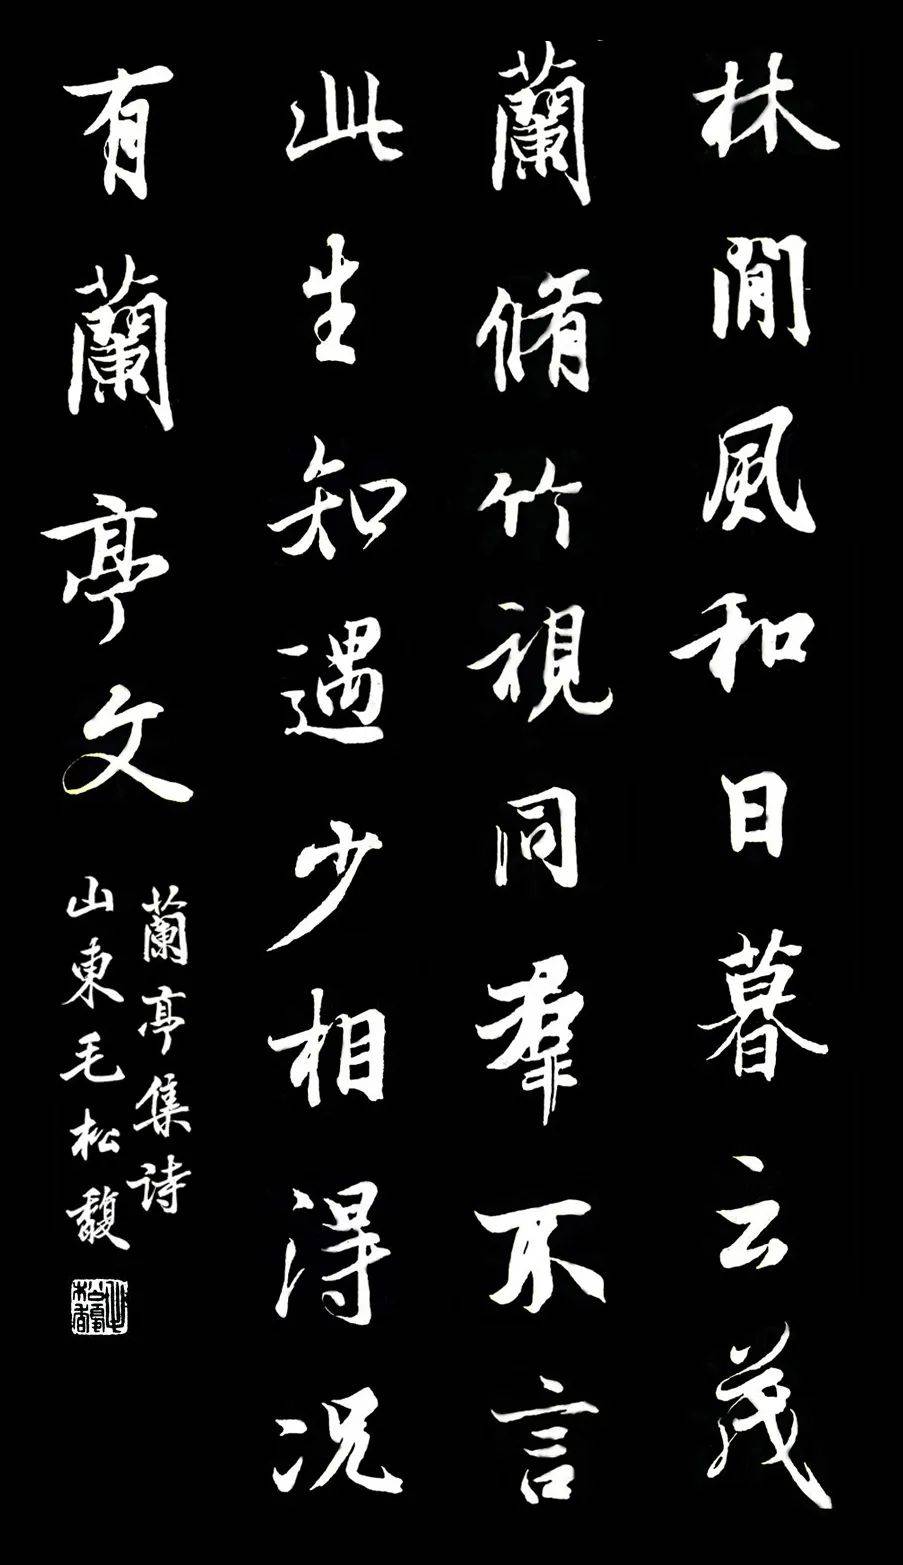 林閒風和日暮云茂
蘭脩竹視同羣不言
此生知遇少相得况
有蘭亭文
蘭亭集诗
山東毛松馥